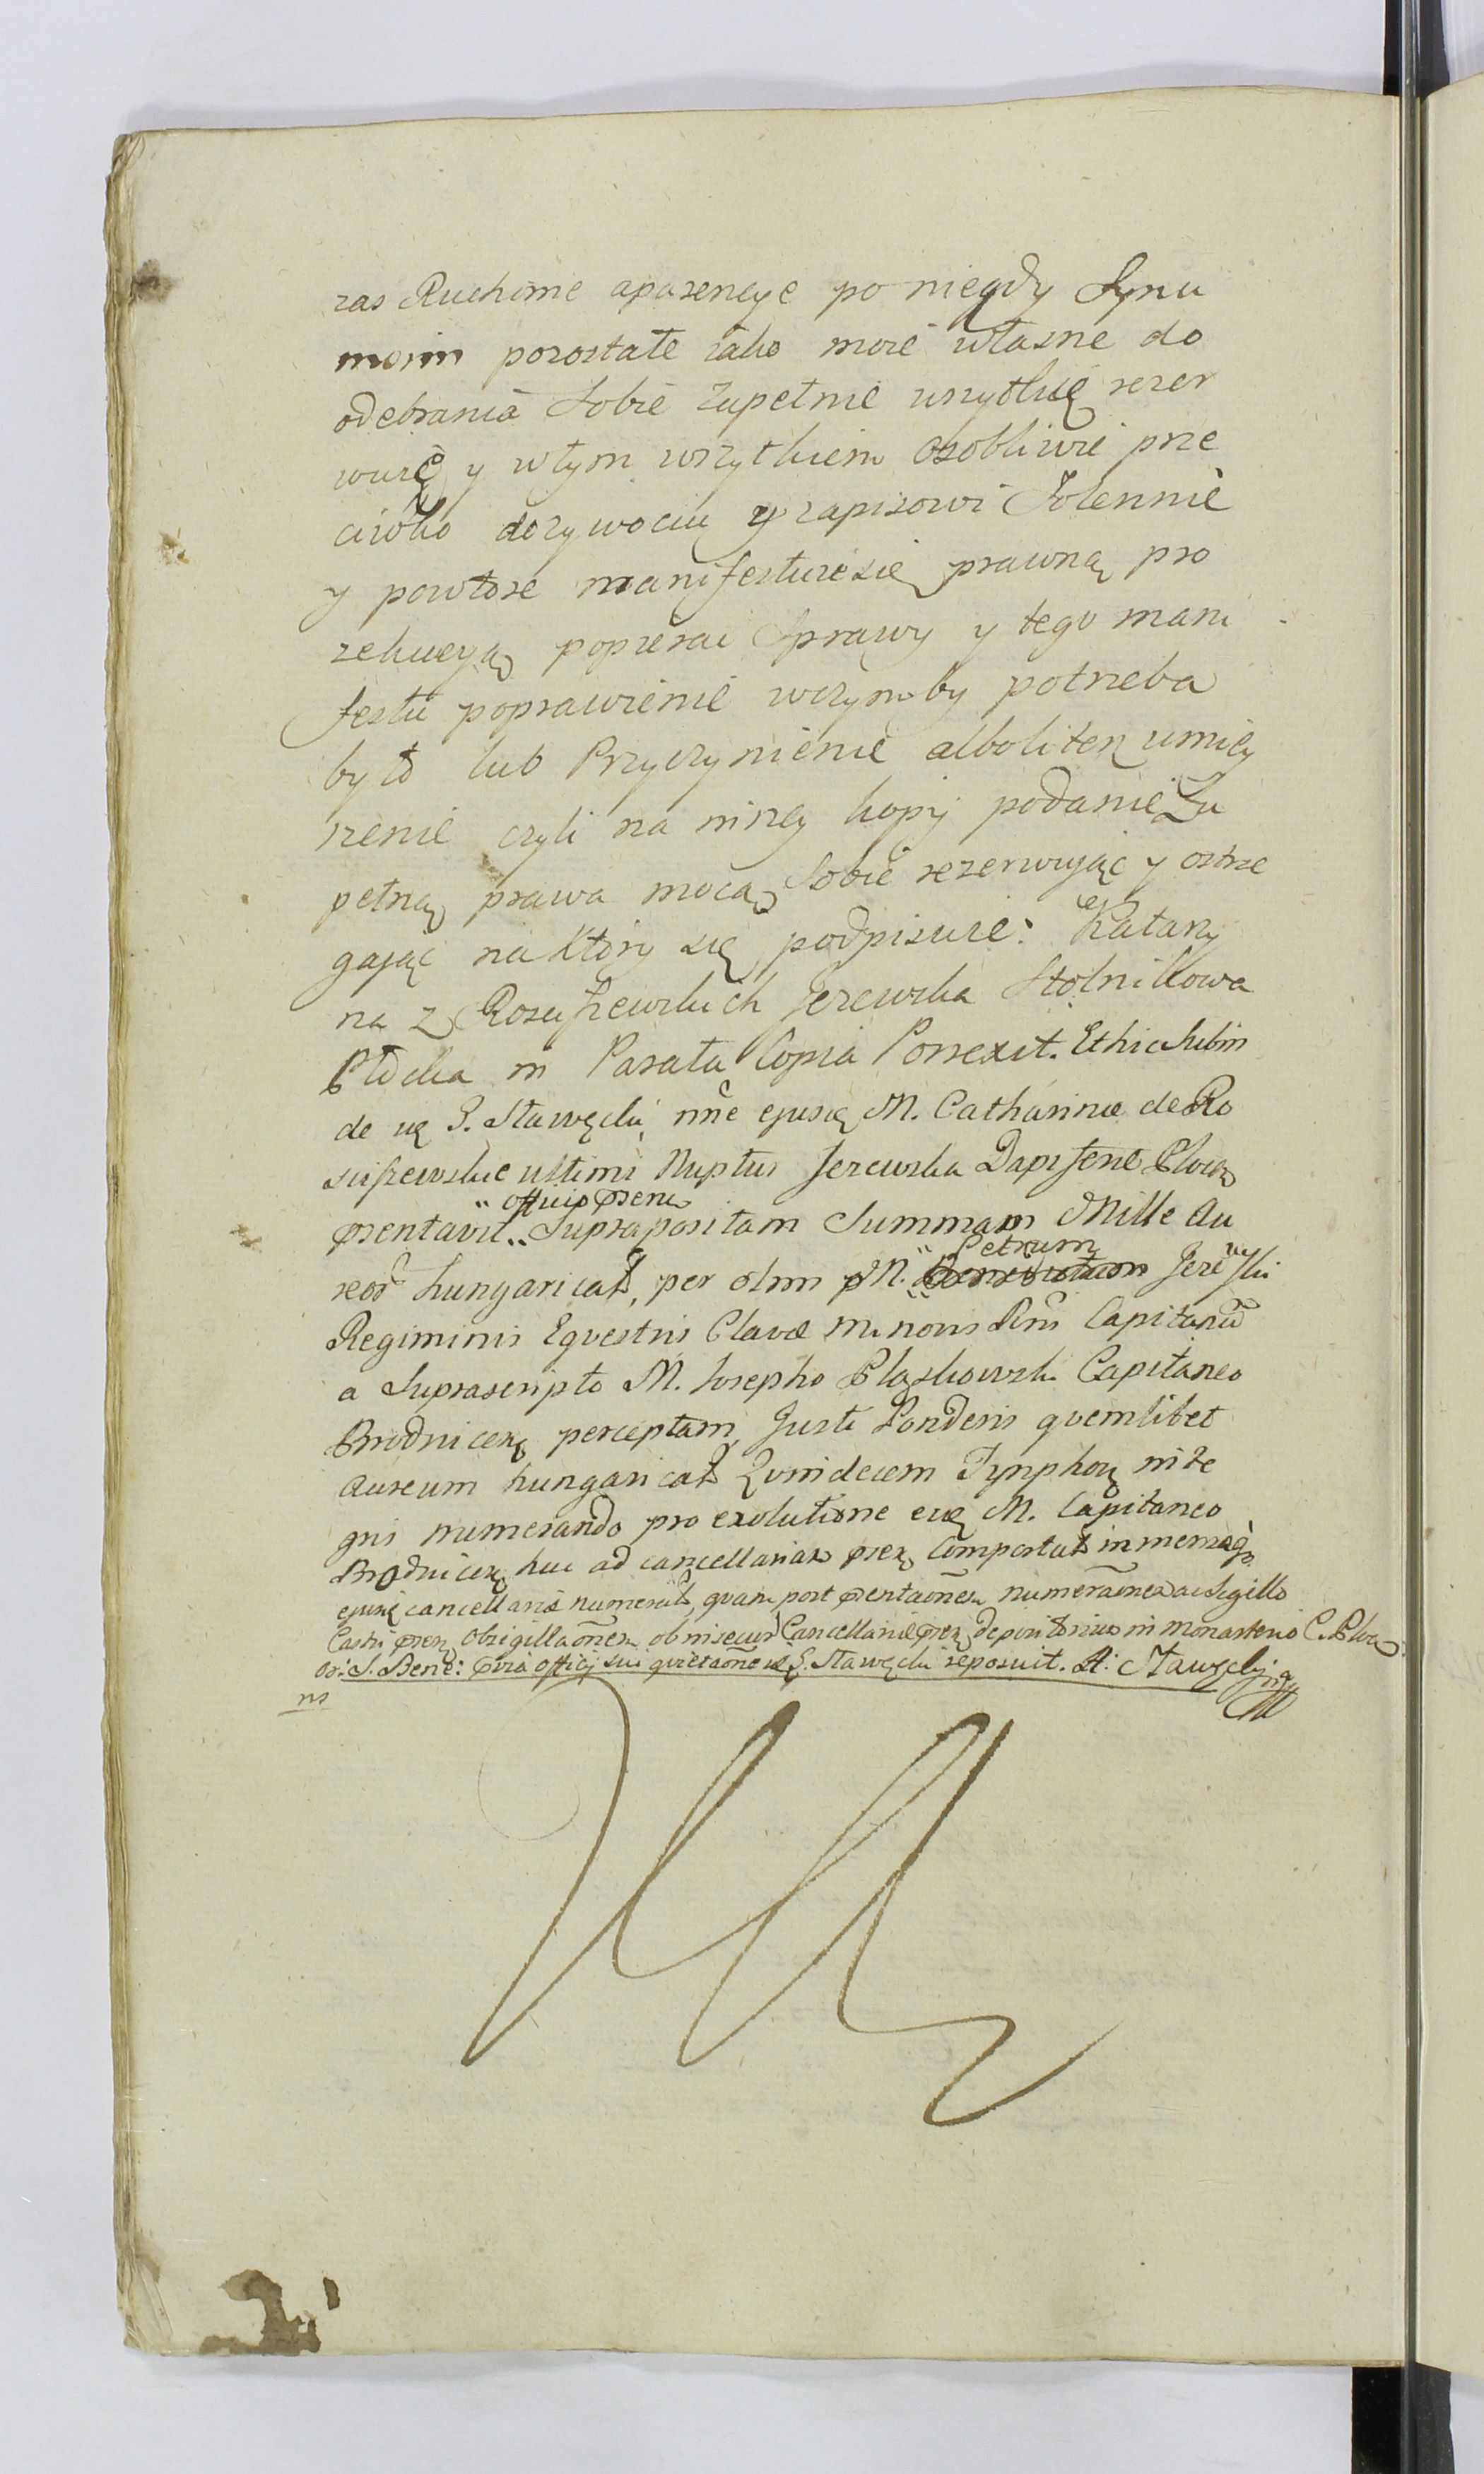 zas Ruchome aparencye po niegdy Synu
moim pozostałe iako moie własne do
odebrania Sobie zupełnie wszytkię rezer
wuię y wtym wszytkiem osobliwie prze
ciwko dozywociu y zapisowi Solennie
y powtore manifestuie się prawną pro
zekucyą popierac Sprawy y tego mani
festu poprawienie wczym by potrzeba
było lub Przyczynienie albo liter umiey
szenie czyli na inszey kopij podanie Zu
pełną prawa mocą Sobie rezerwując y ostrze
gając na ktory się podpisuie: Katarzy
na z Rosciszewskich Jezewska Stolnikowa
Płocka in Parata Copia Porrexit. Et hic Subin
de G. Stawęcki nne ejusę M. Catharinæ de Ro
sciszewskie ultimi Nuptus Jezewska Dapifere Ploceń
præsentavit ̈ officio præsenti ̈ Suprapositam Summam Mille Au
reor hungarical, per olim M. ̈ Petrum ̈ Jezewski
Regiminis Equestris Clavæ Minoris Rni Capitaneum
a Suprascripto M. Josepho Pląskowski Capitaneo
Brodnicenę perceptam, Justi Ponderis quemlibet
Aureum hungarical Quindecem Tynphonę inte
gris numerando pro exolutione M. Capitaneo
Brodnicenę huc ad cancellariam præsę Comportat in mensa
ejusę cancellariæ numerat, quam post præsentaonem numeraonem ac Sigillo
Castri præsę Obsigillaonem ob Cancellariæ præsę depositorium in Monasterio C. Ploceń
Or: S. Bene: præviâ officij sui quietaone G. Stawęcki reposuit. A: Stawęcky mp
ns